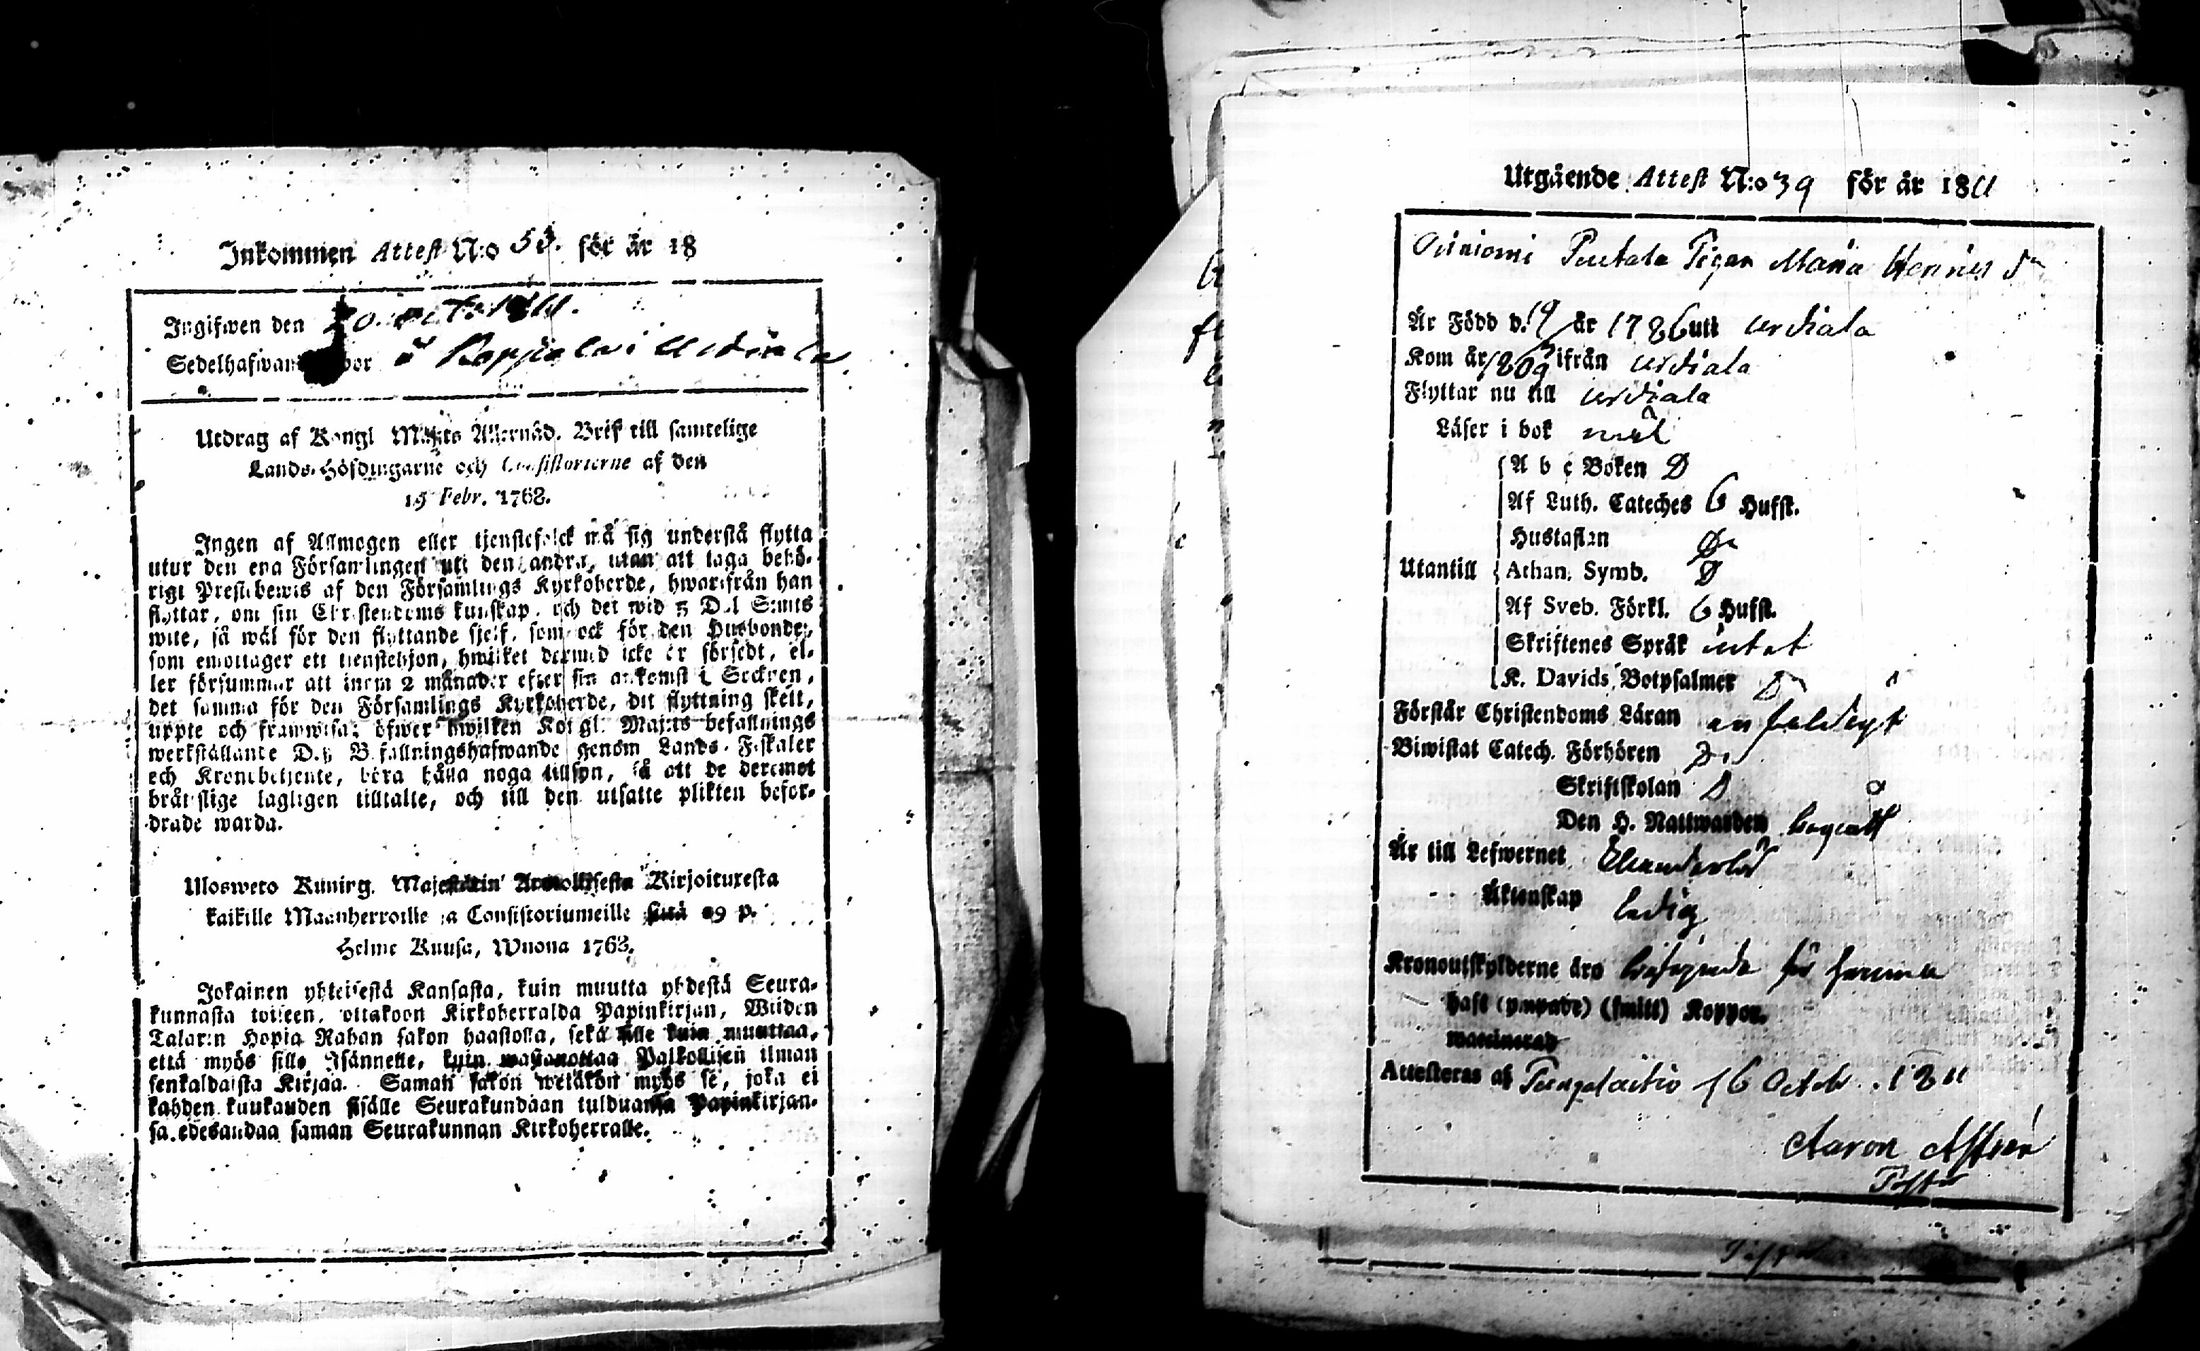 Inkommen Attest N:o 53. för år 18
Ingifwen den 20 Oct. 1811.
Sedelhafwan bor å i Urdiala
Utdrag af Kongl Maj:ts Allernåd. Bref till samtelige
Lands-Höfdingarne och Consistorierne af den
19 Febr. 1768.
Ingen af Allmogen eller tjenstefolck må sig understå flytta
utur den ena Församlingen uti den andra, utan att taga behö-
rigt Prestebewis af den Församlings Kyrkoherde, hwarifrån han
flyttar, om sin Christendoms kunskap, och det wid 5 Dal S:mts
wite, så wäl för den flyttande sjelf, som ock för den Husbonde,
som emottager ett tienstehjon, hwilket dermed icke är försedt, el-
ler försummar att inom 2 månader efter sin ankomst i Socknen,
det samma för den Församlings Kyrkoherde, dit flyttning skett,
uppte och framwisa; öfwer hwilken Kongl. Maj:ts befallnings
werkställande D. B fallningshafwande genom Lands-Fiskaler
och Kronobetjente, böra hålla noga tillsyn, så att de deremot
bråtslige lagligen tilltalte, och till den utsatte plikten befor-
drade warda.
Ulosweto Kuning. Majestätin Armollisesta Kirjoituxesta
kaikille Maanherroille ja Consistoriumeille siitä 19 p.
Helme Kuusa, Wuona 1768.
Jokainen yhteisestä Kansasta, kuin muutta yhdestä Seura-
kunnasta toiseen, ottakoon Kirkoherralda Papinkirjan, Wiiden
Talarin Hopia Rahan sakon haastolla, sekä sille kuin muuttaa,
että myös sille Isännelle, kuin wastanottaa Palkollisen ilman
senkaldaista Kirjaa. Saman sakon wetäkön myös se, joka ei
kahden kuukauden sisälle Seurakundaan tulduansa Papinkirjan-
sa edesandaa saman Seurakunnan Kirkoherralle.
Utgående Attest N:o 39 för år 1811
Pigan Maria Henrics dr
Är Född d. 19/ år 1786 uti Urdiala
Kom år 1809 ifrån Urdiala
Flyttar nu till Urdiala
Läser i bok wäl
A b c Boken D
Af Luth. Cateches 6 Hufst.
Hustaflan
Utantill Athan. Symb. D
Af Sveb. Förkl. 6 Hufst.
Skriftenes Språk intet
K. Davids Botpsalmer D
Förstår Christendoms Läran enfaldigt
Biwistat Catech. Förhören
Skriftskolan D
Den H. Nattwarden begått
Är till Lefwernet
Äktenskap ledig
Kronoutskylderne äro för
haft (ympade) (smitt) Koppor.
waccinerad
Attesteras af 16 Octob. 1811
Aaron